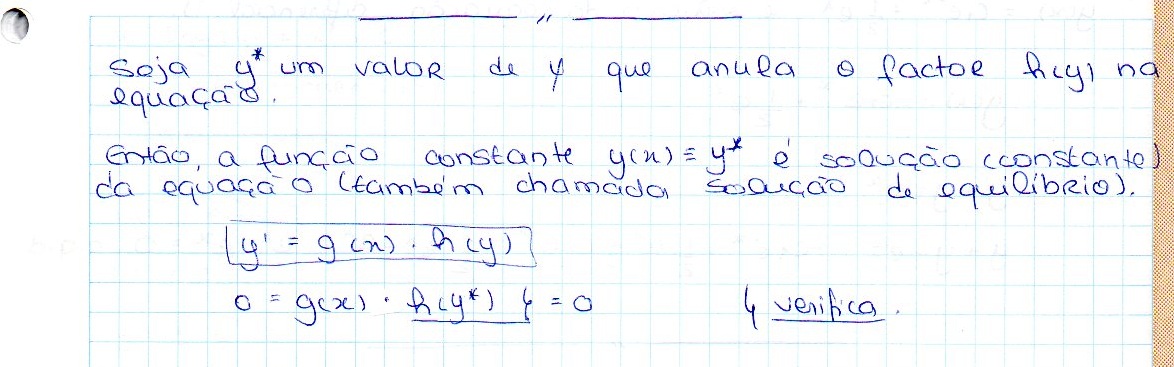 Seja y* um valor de y que anula o factor h(y) na
equação.
Então, a função constante y(x) ≡ y* é solução (constante)
da equação (também chamada solução de equilíbrio).
y' = g(x) . h(y)
0 = g(x) . h(y*) = 0 verifica.